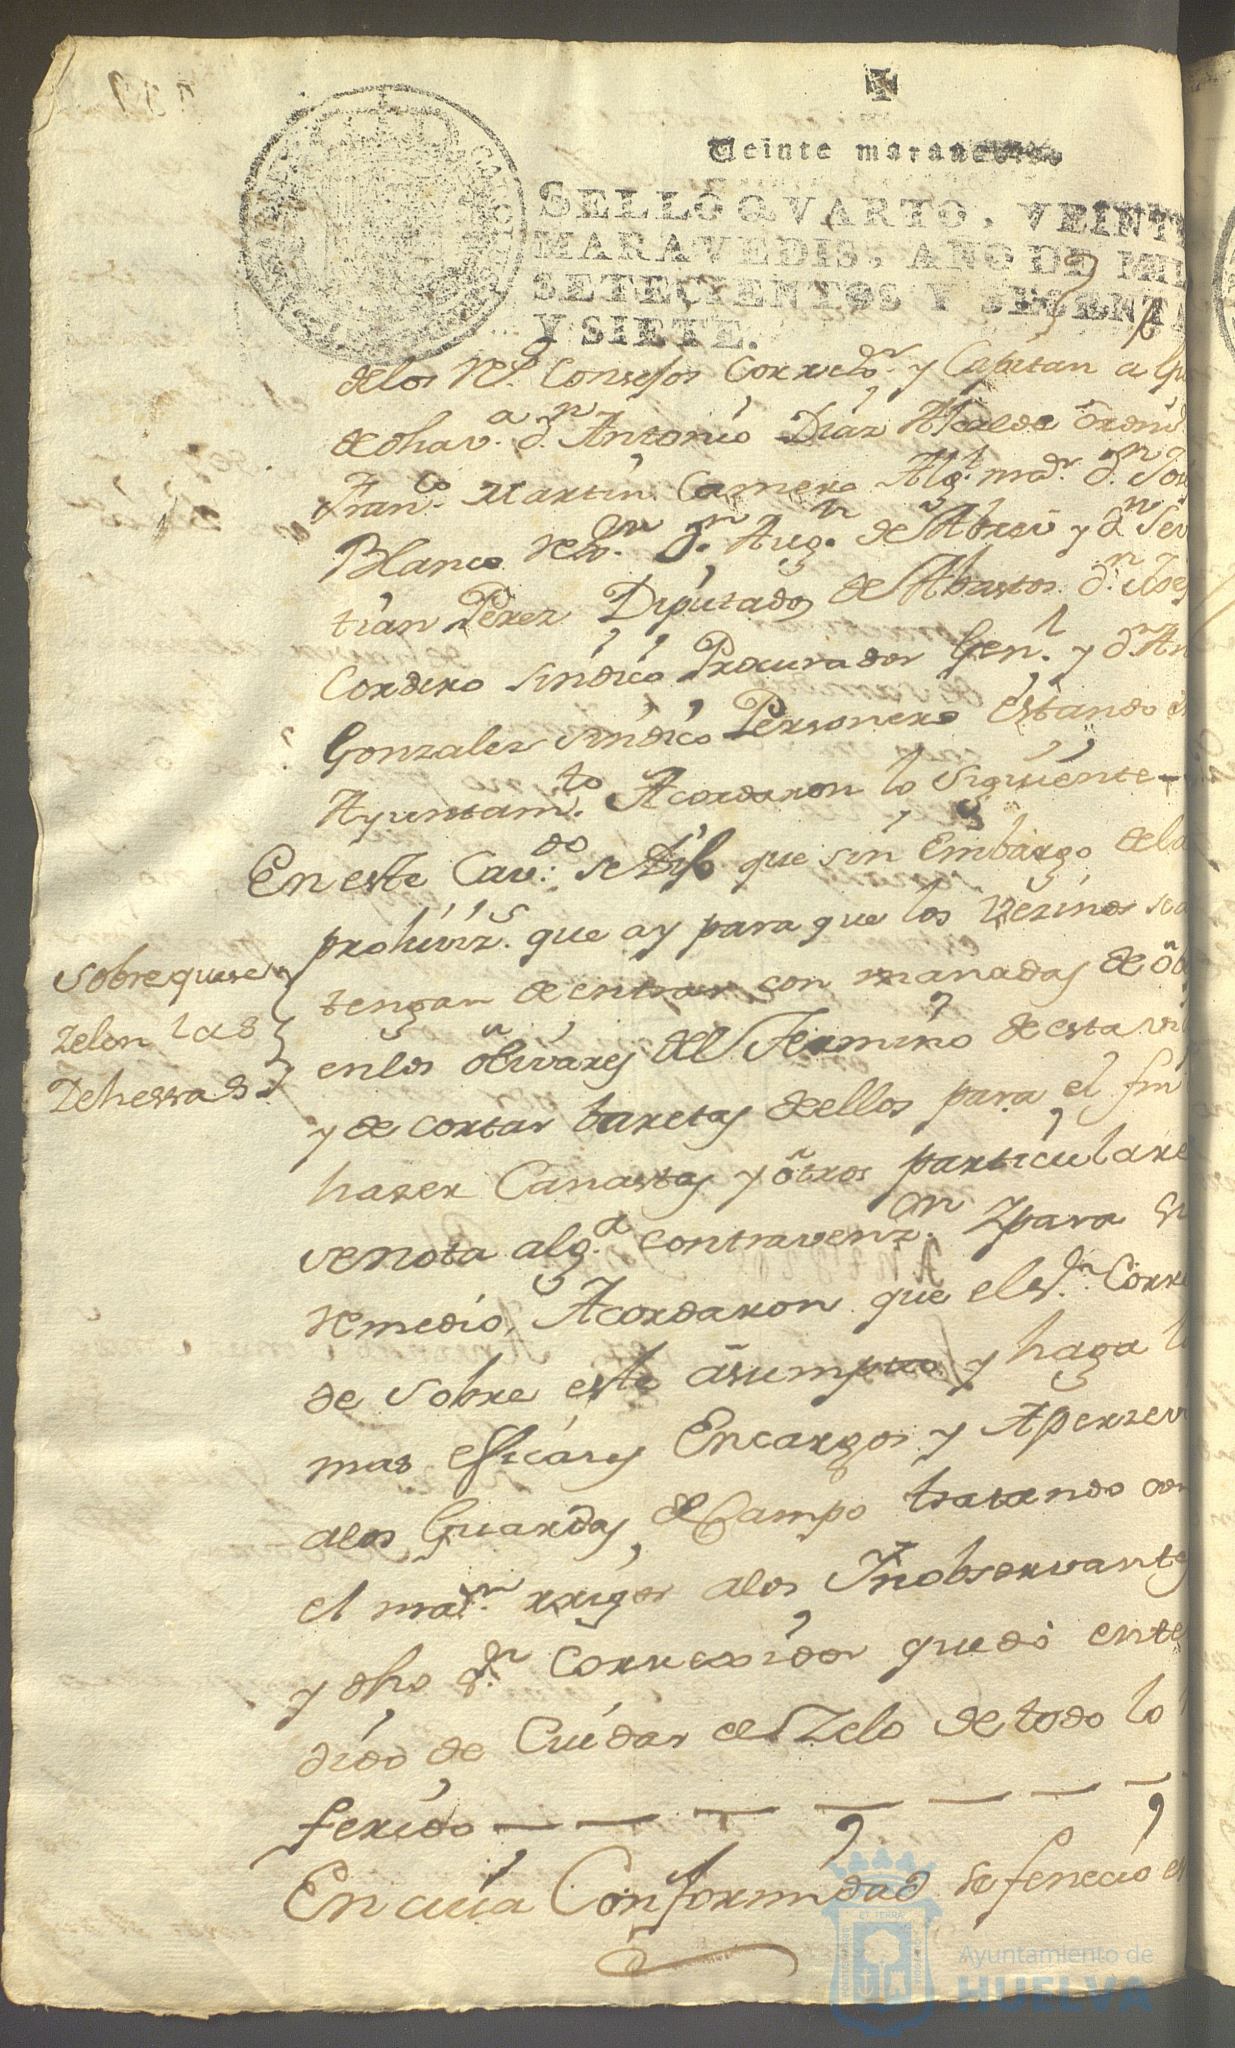 Veinte maravedis
SELLO QVARTO, VEINT
MARAVEDIS, AÑO DE MIL
SETECIENTOS Y SESENTA
Y SIETE.
delos Rs. Consejos Correxor. y Capitan a
de dha va. dn. Antonio Diaz Alcalde ordin
Franco Martin Camero Algl. mor. dn. Jo
Blanco Rexor. dn. Augn. de Abreu y dn Sev
tian Perez Diputados de Abastos dn. Jose
Cordero Sindico Procurador Genl. y dn An
Gonzales Sindico Personero Estando en
Ayuntamto. Acordaron lo siguiente
En este Cavdo. se dijo que sin Embargo dela
prohivizs. que ay para que los vezinos se a
tengan de entrar con manadas de ob
enlos olivares del Termino de esta vi
y de cortar baretas dellos para el fin
hazer Canastas y otros particulare
se nota alga. contravenzon. Y para su
remedio, Acordaron que el sor. Corre
de sobre este asumpto y haga l
mas eficazes Encargos y Aperzevi
alos Guardas del Campo tratando con
el maor. rrigor alos Ynobservantes
y dho sor. Correxidor quedó ente
dido de Cuidar el Zelo de todo lo
ferido
En cuia Conformidad se feneció e
Sobre que se
Zelen las
Dehessas
Ayuntamiento de
HUELVA